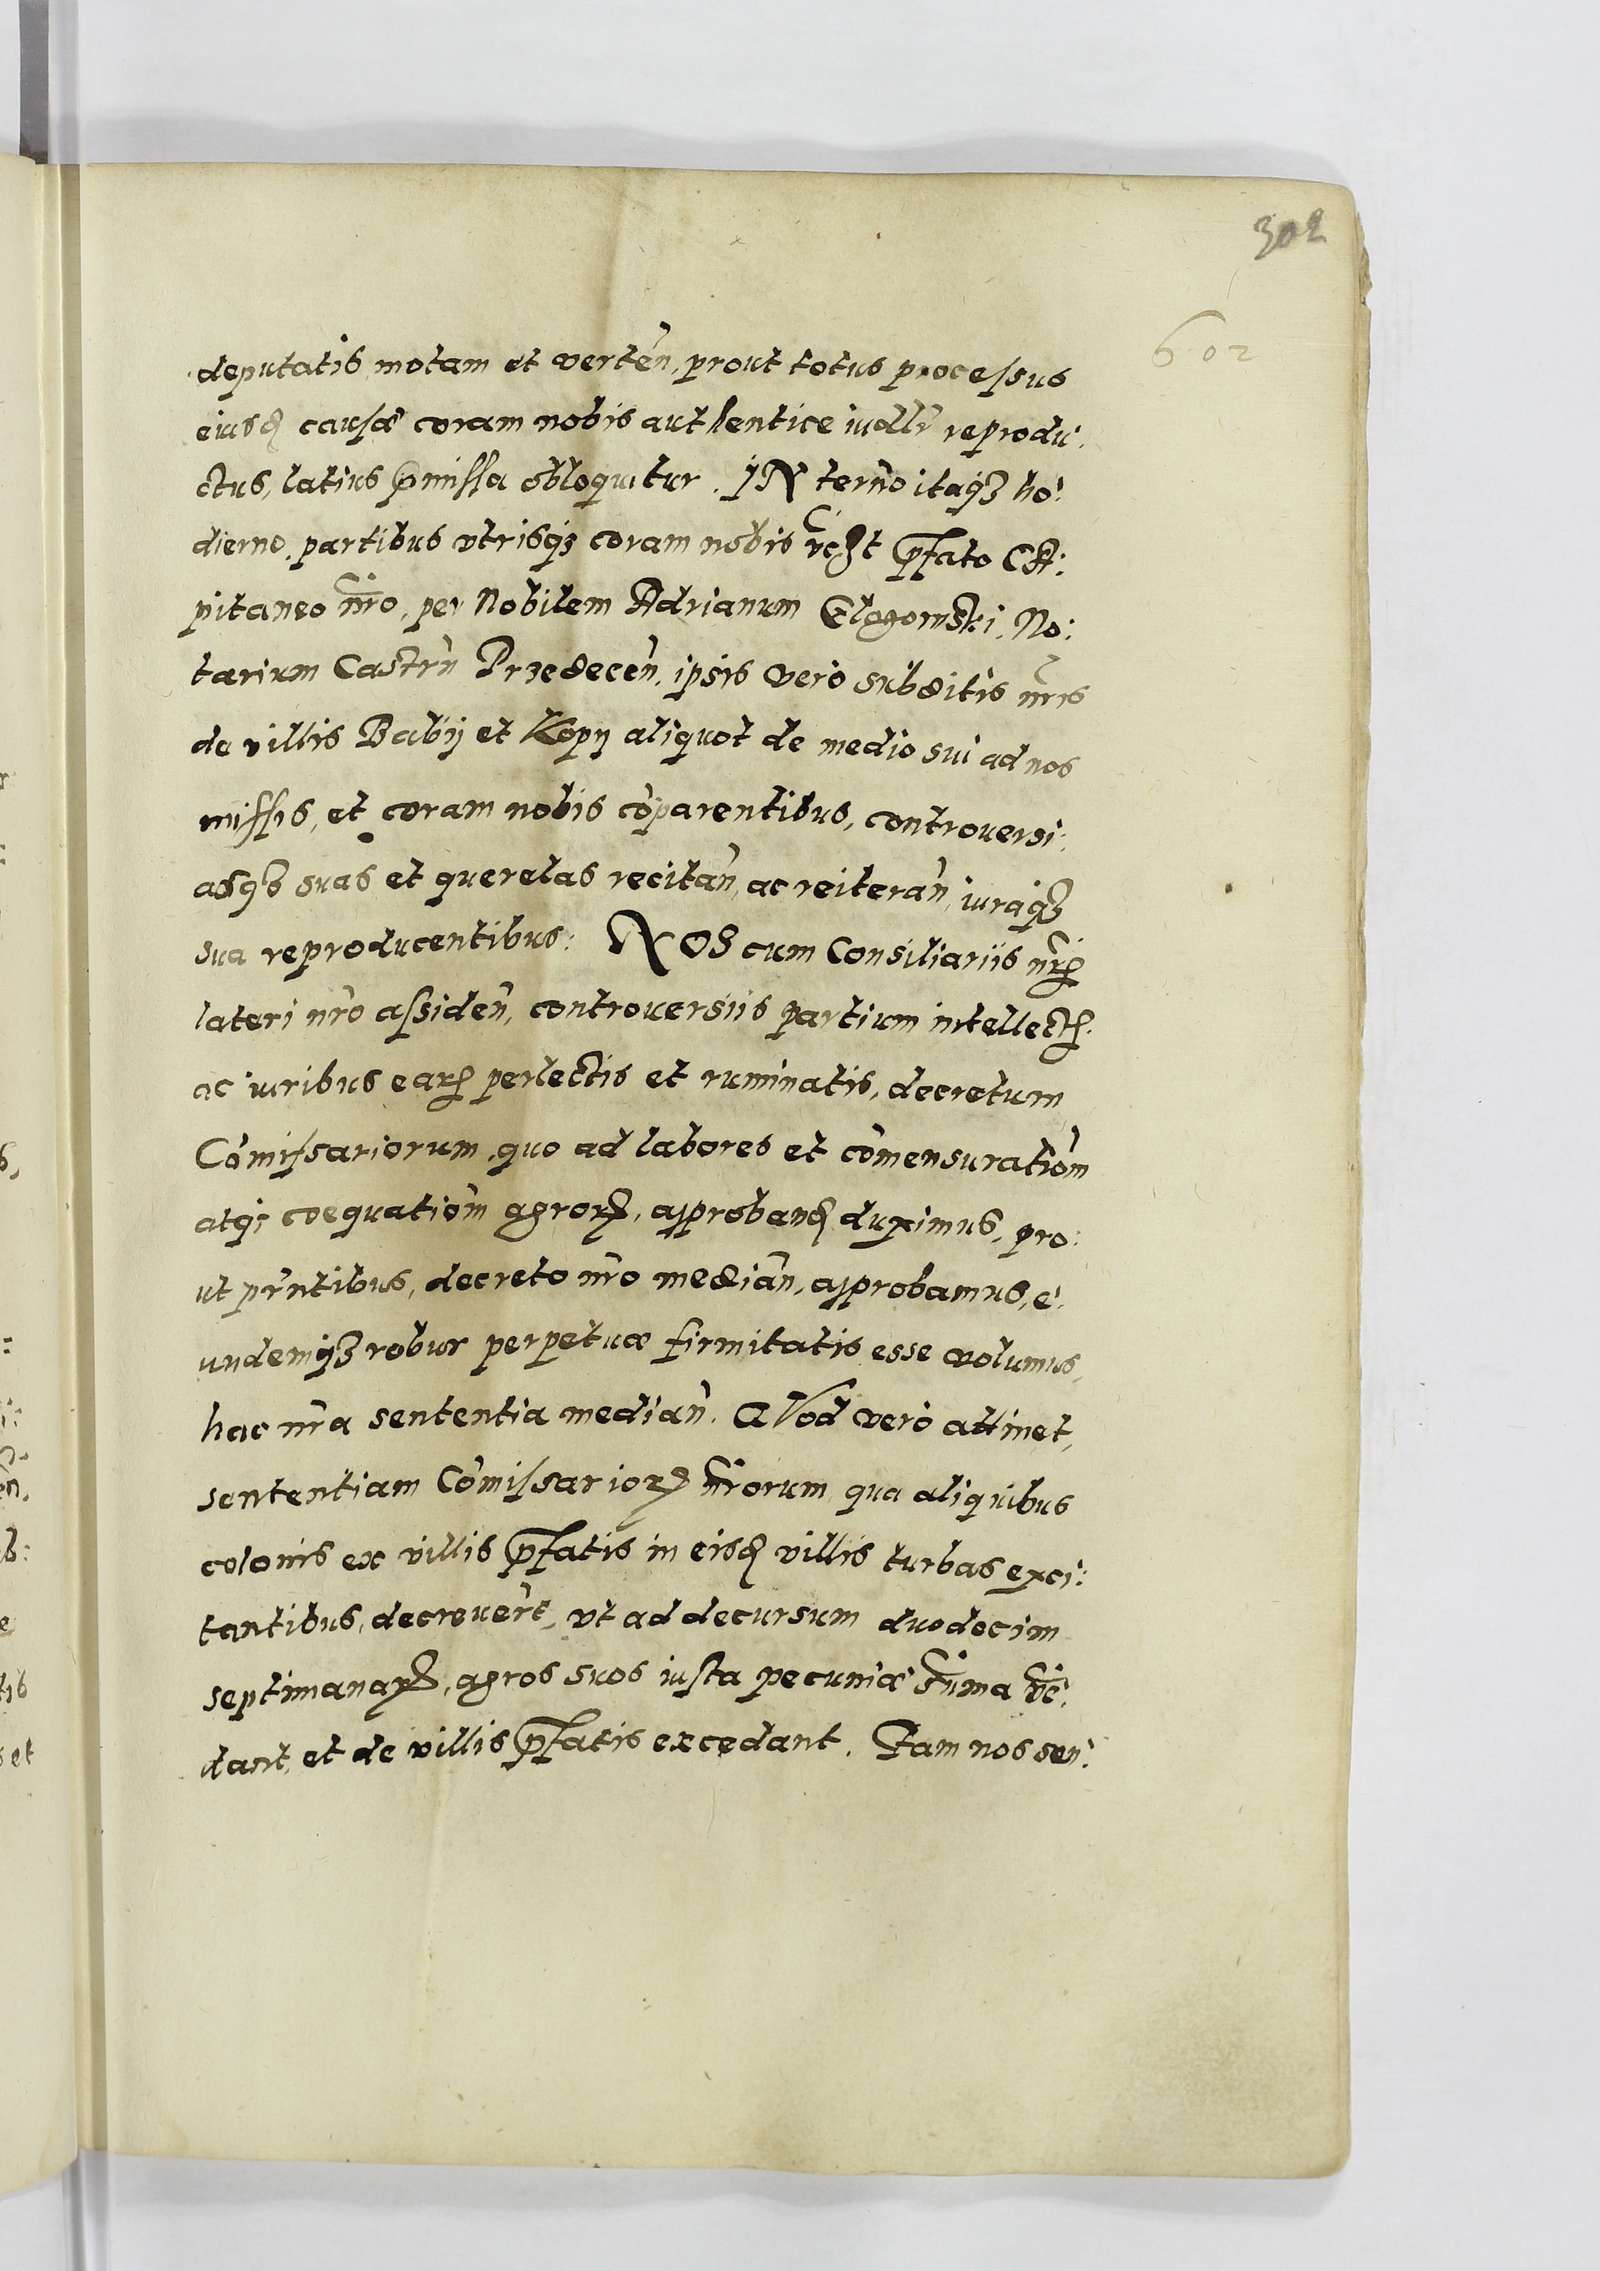 302
602
deputatis motam et vertẽn, prout totus processus
eiusd causæ coram nobis authentice iudlr reprodu:
ctus, latius pmissa obloquitur. IN termo itaqz ho:
dierno, partibus vtrisqz coram nobis vczt pfato CA:
pitaneo nro, per Nobilem Adrianum No:
tarium Castrn Przedecen, ipsis vero subditis nris
de villis Babij et Kopy aliquot de medio sui ad nos
missis, et coram nobis cõparentibus, controuersi:
asqz suas et querelas recitañ, ac reiterañ, iuraqz
sua reproducentibus: NOS cum Consiliariis nrꝝ
lateri nro assideñ, controuersiis partium intellectꝭ
ac iuribus earꝝ perlectis et ruminatis, decretum
Cõmissariorum, quo ad labores et cõmensurationm
atqz coequationm agrorꝝ, approband duximus, pro:
ut prntibus, decreto nro mediañ, approbamus, e:
undemqz robur perpetuæ firmitatis esse volumus,
hac nra sententia mediañ. QVod vero attinet,
sententiam Cõmissariorꝝ nrorum, qua aliquibus
colonis ex villis pfatis in eisd villis turbas exci:
tantibus, decreuerꝭt, vt ad decursum duodecim
septimanarꝝ, agros suos iusta pecuniæ sũma vẽ:
dant, et de villis pfatis excedant. Eam nos sen: